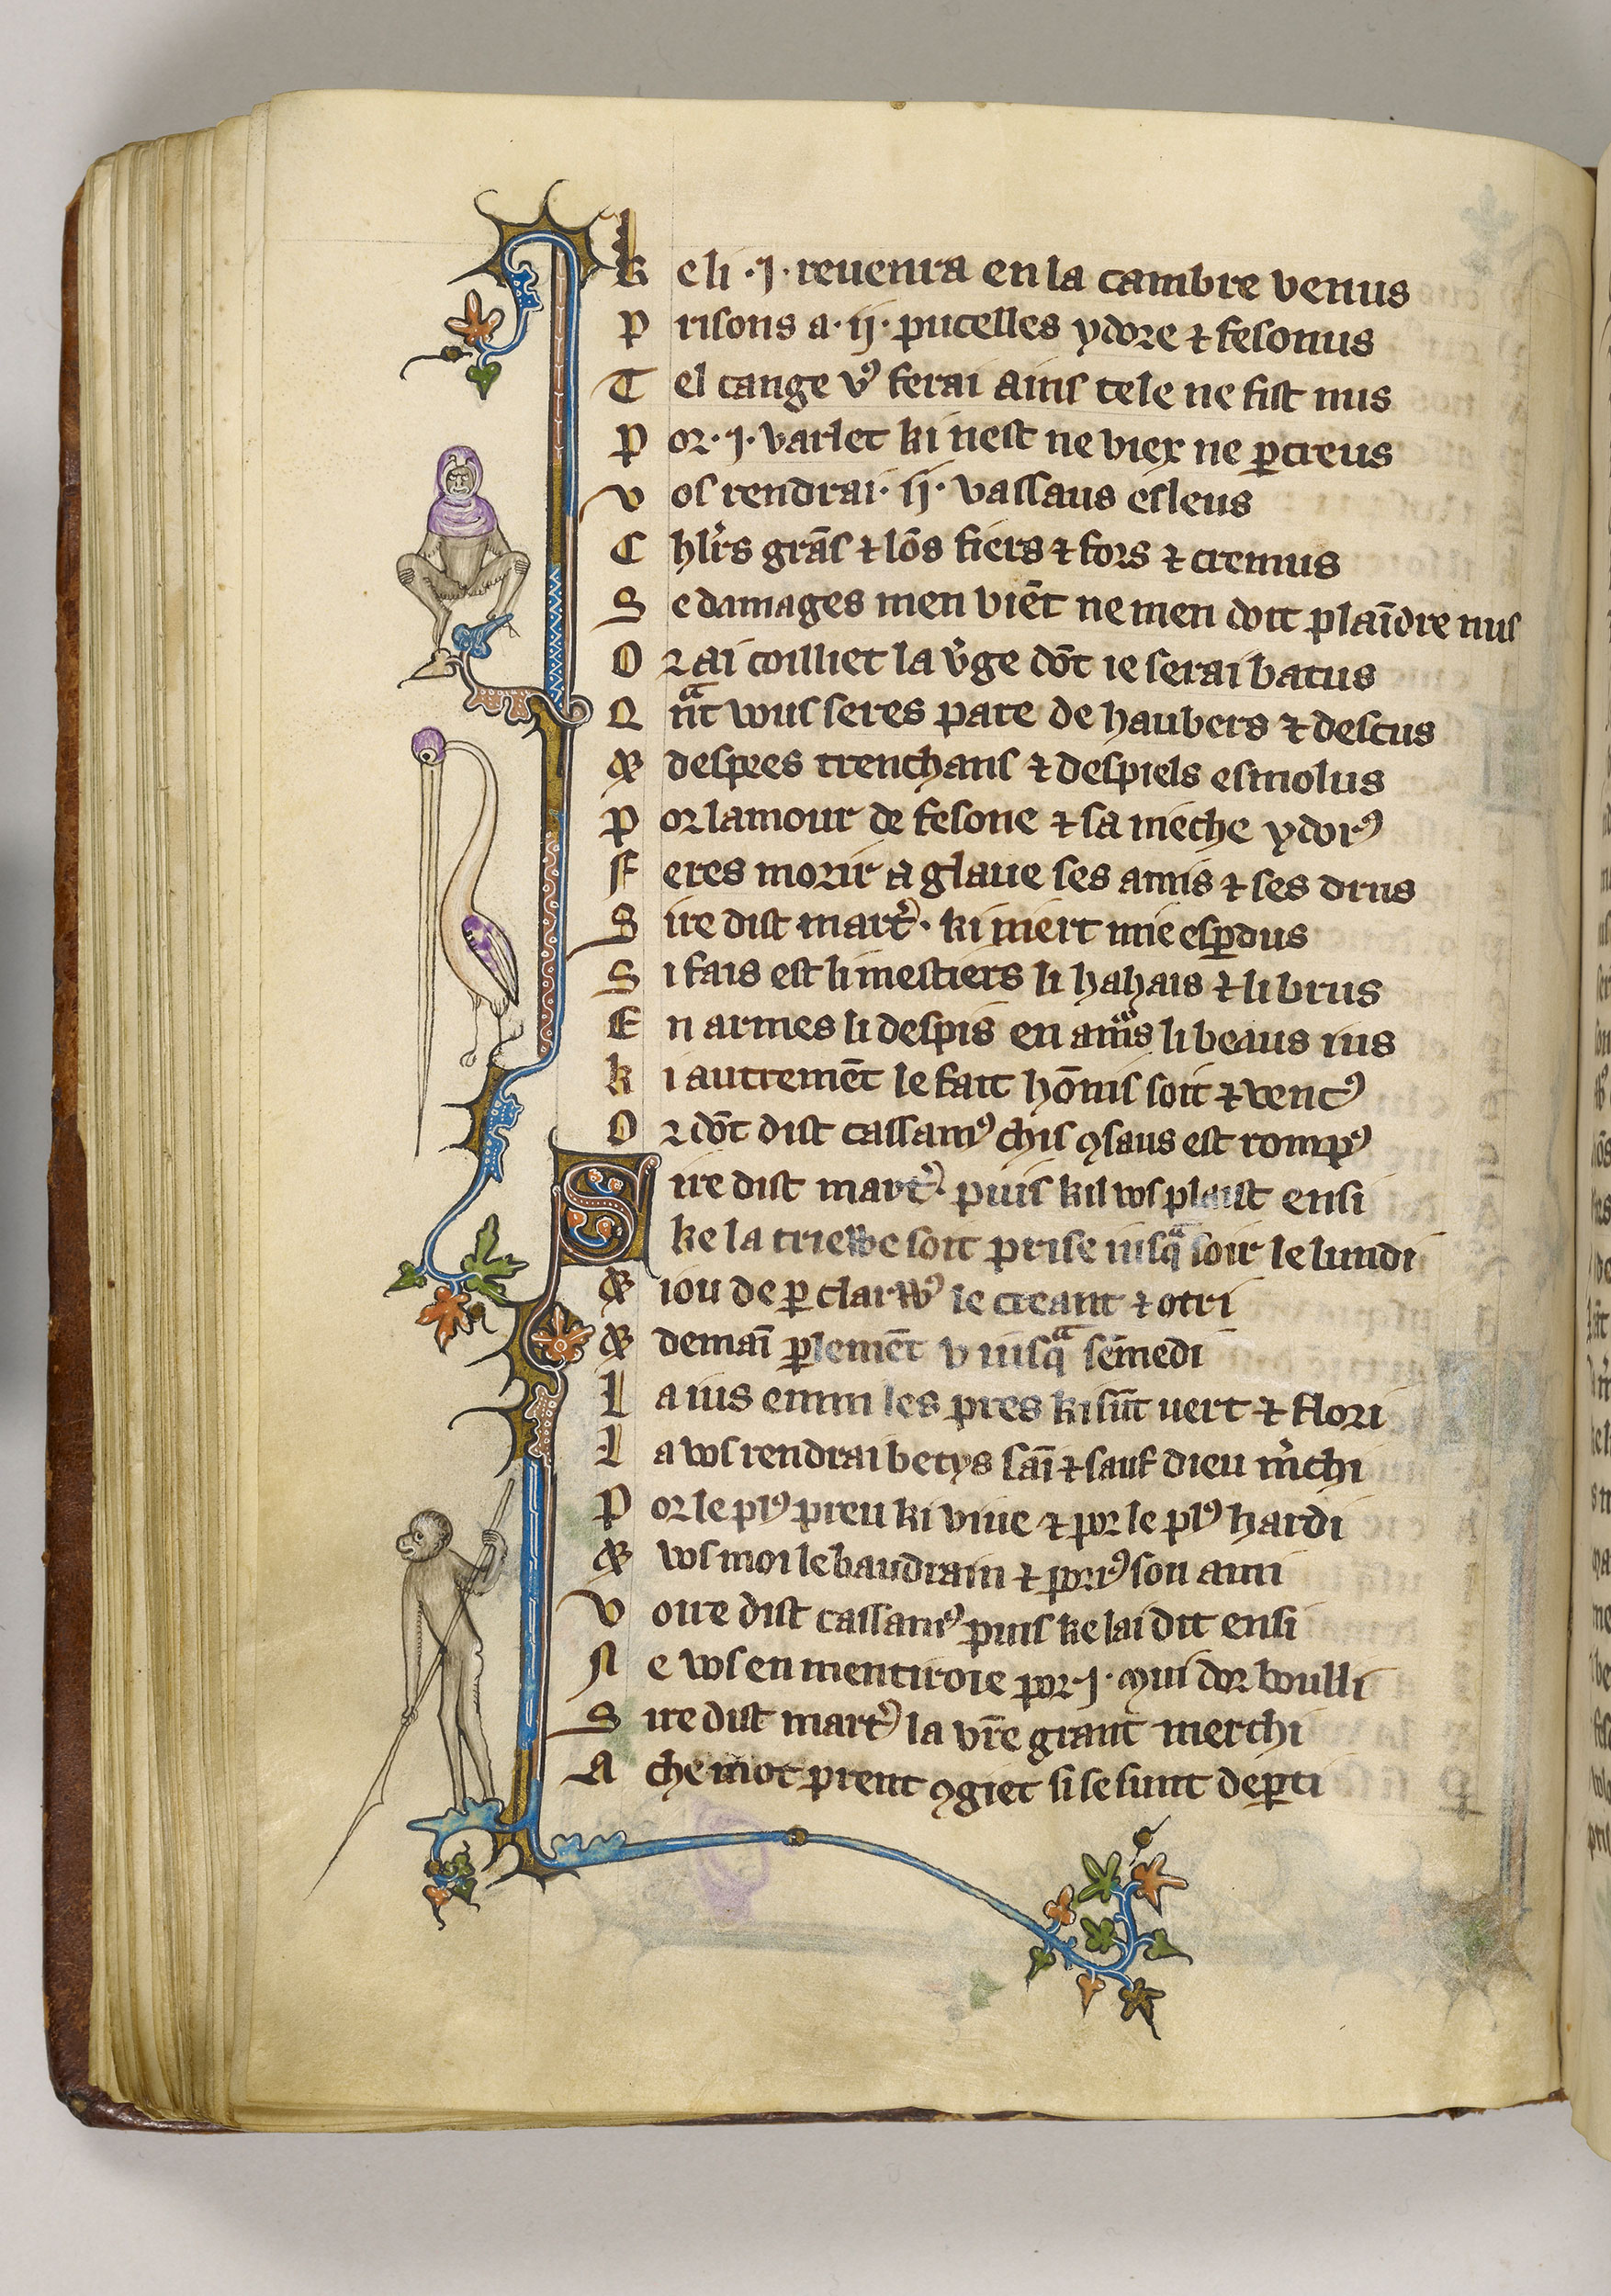 k e li ·j· reuenra en la cambre venus
P risons a· ij· pucelles ydore ⁊ fesonus
T el cange vꝰ ferai Ains tele ne fist nus
P or· j· varlet ki nest ne viex ne ꝑcreus
V os rendrai· ij· vassaus esleus
C hlr̄s grās ⁊ lōs fiers ⁊ fors ⁊ cremus
S e damages men viēt ne men doit plaīdre nus
O r ai coilliet la v̾ge dōt ie serai batus
Q nᵃt wus seres pare de haubers ⁊ descus
⁊ despees trenchans ⁊ despiels esmolus
P or lamour de fesone ⁊ sa nieche ydorꝰ
F eres morir a glaue ses amis ⁊ ses drus
S ire dist mart̾· ki niert mie esꝑdus
S i fais est li mestiers li hahais ⁊ li brus
E n armes li despis en amᵃs li beaus ius
k i autremēt le fait hōnis soit ⁊ vencꝰ
O r dōt dist cassamꝰ chis ꝯsaus est rompꝰ
S ire dist mart̾· puis kil wos plaist ensi
ke la triewe soit prise iusqᵃ soir le lundi
⁊ iou de ꝑ clarwꝰ le creant ⁊ otri
⁊ demaī ꝑlemēt v iusqᵃ sēmedi
L a ius enmi les pres ki sūt uert ⁊ flori
L a wos rendrai betys saī ⁊ sauf dieu m̾chi
P or le plꝰ preu ki viue ⁊ por le plꝰ hardi
⁊ vos moi le baudrain ⁊ porrꝰ son ami
V oire dist cassamꝰ puis ke lai dit ensi
N e vos en mentiroie por· j· mui dor boulli
S ire dist mart̾ la vr̄e grant merchi
A che mot prent ꝯgiet si se sunt deꝑti